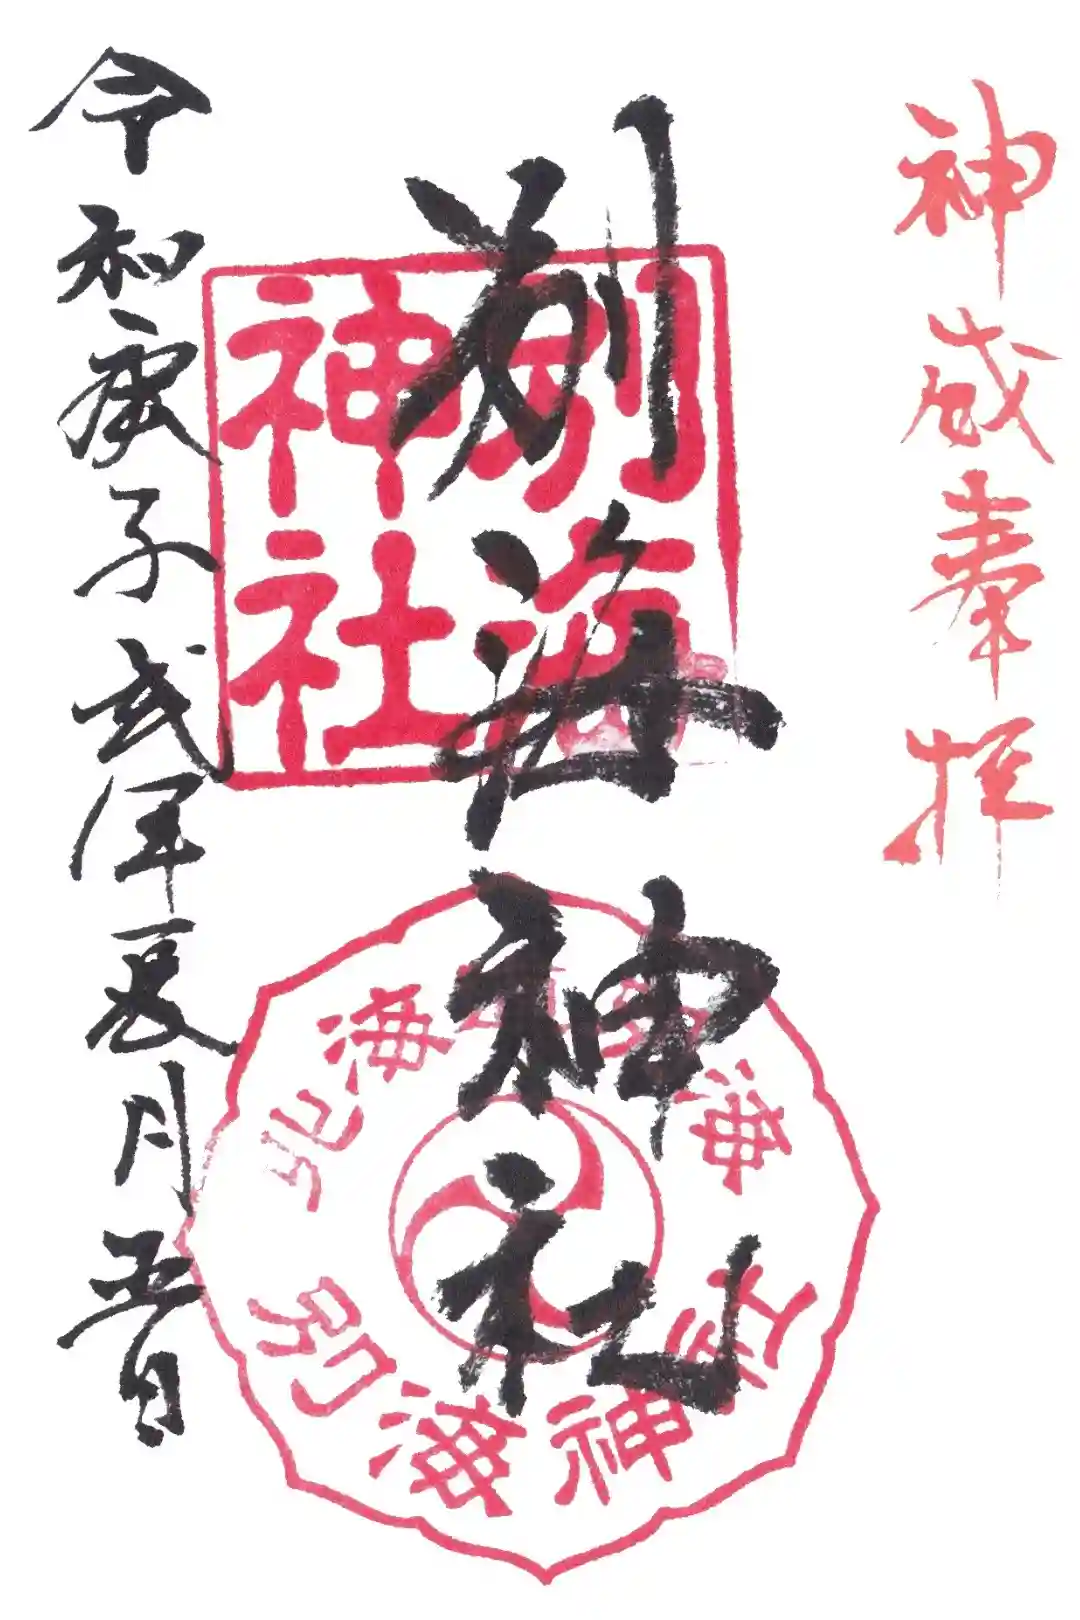 神威奉拝
別海神社
令和庚子弐年長月五日
別海神社
別海神